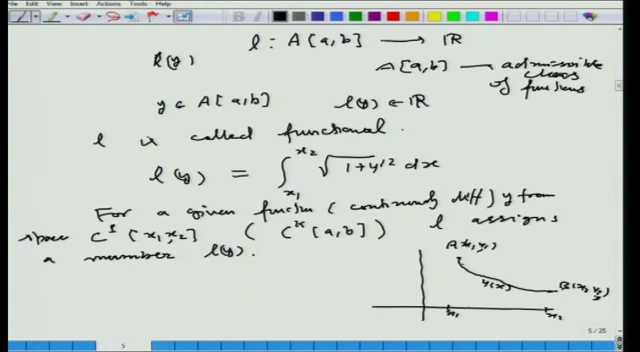 File Edit View Insert Actions Tools Help
l : A[a,b] → ℝ
l(y)
A[a,b] — admissible class of functions
y ∈ A[a,b] l(y) ∈ ℝ
l is called functional.
l(y) = ∫_{x₁}^{x₂} √(1+y'²) dx
For a given function (continuously diff) y from
space C¹[x₁,x₂] (Cᵏ[a,b]) l assigns
a number l(y).
A(x₁,y₁)
y(x)
B(x₂,y₂)
x₁ x₂
5 / 25
5